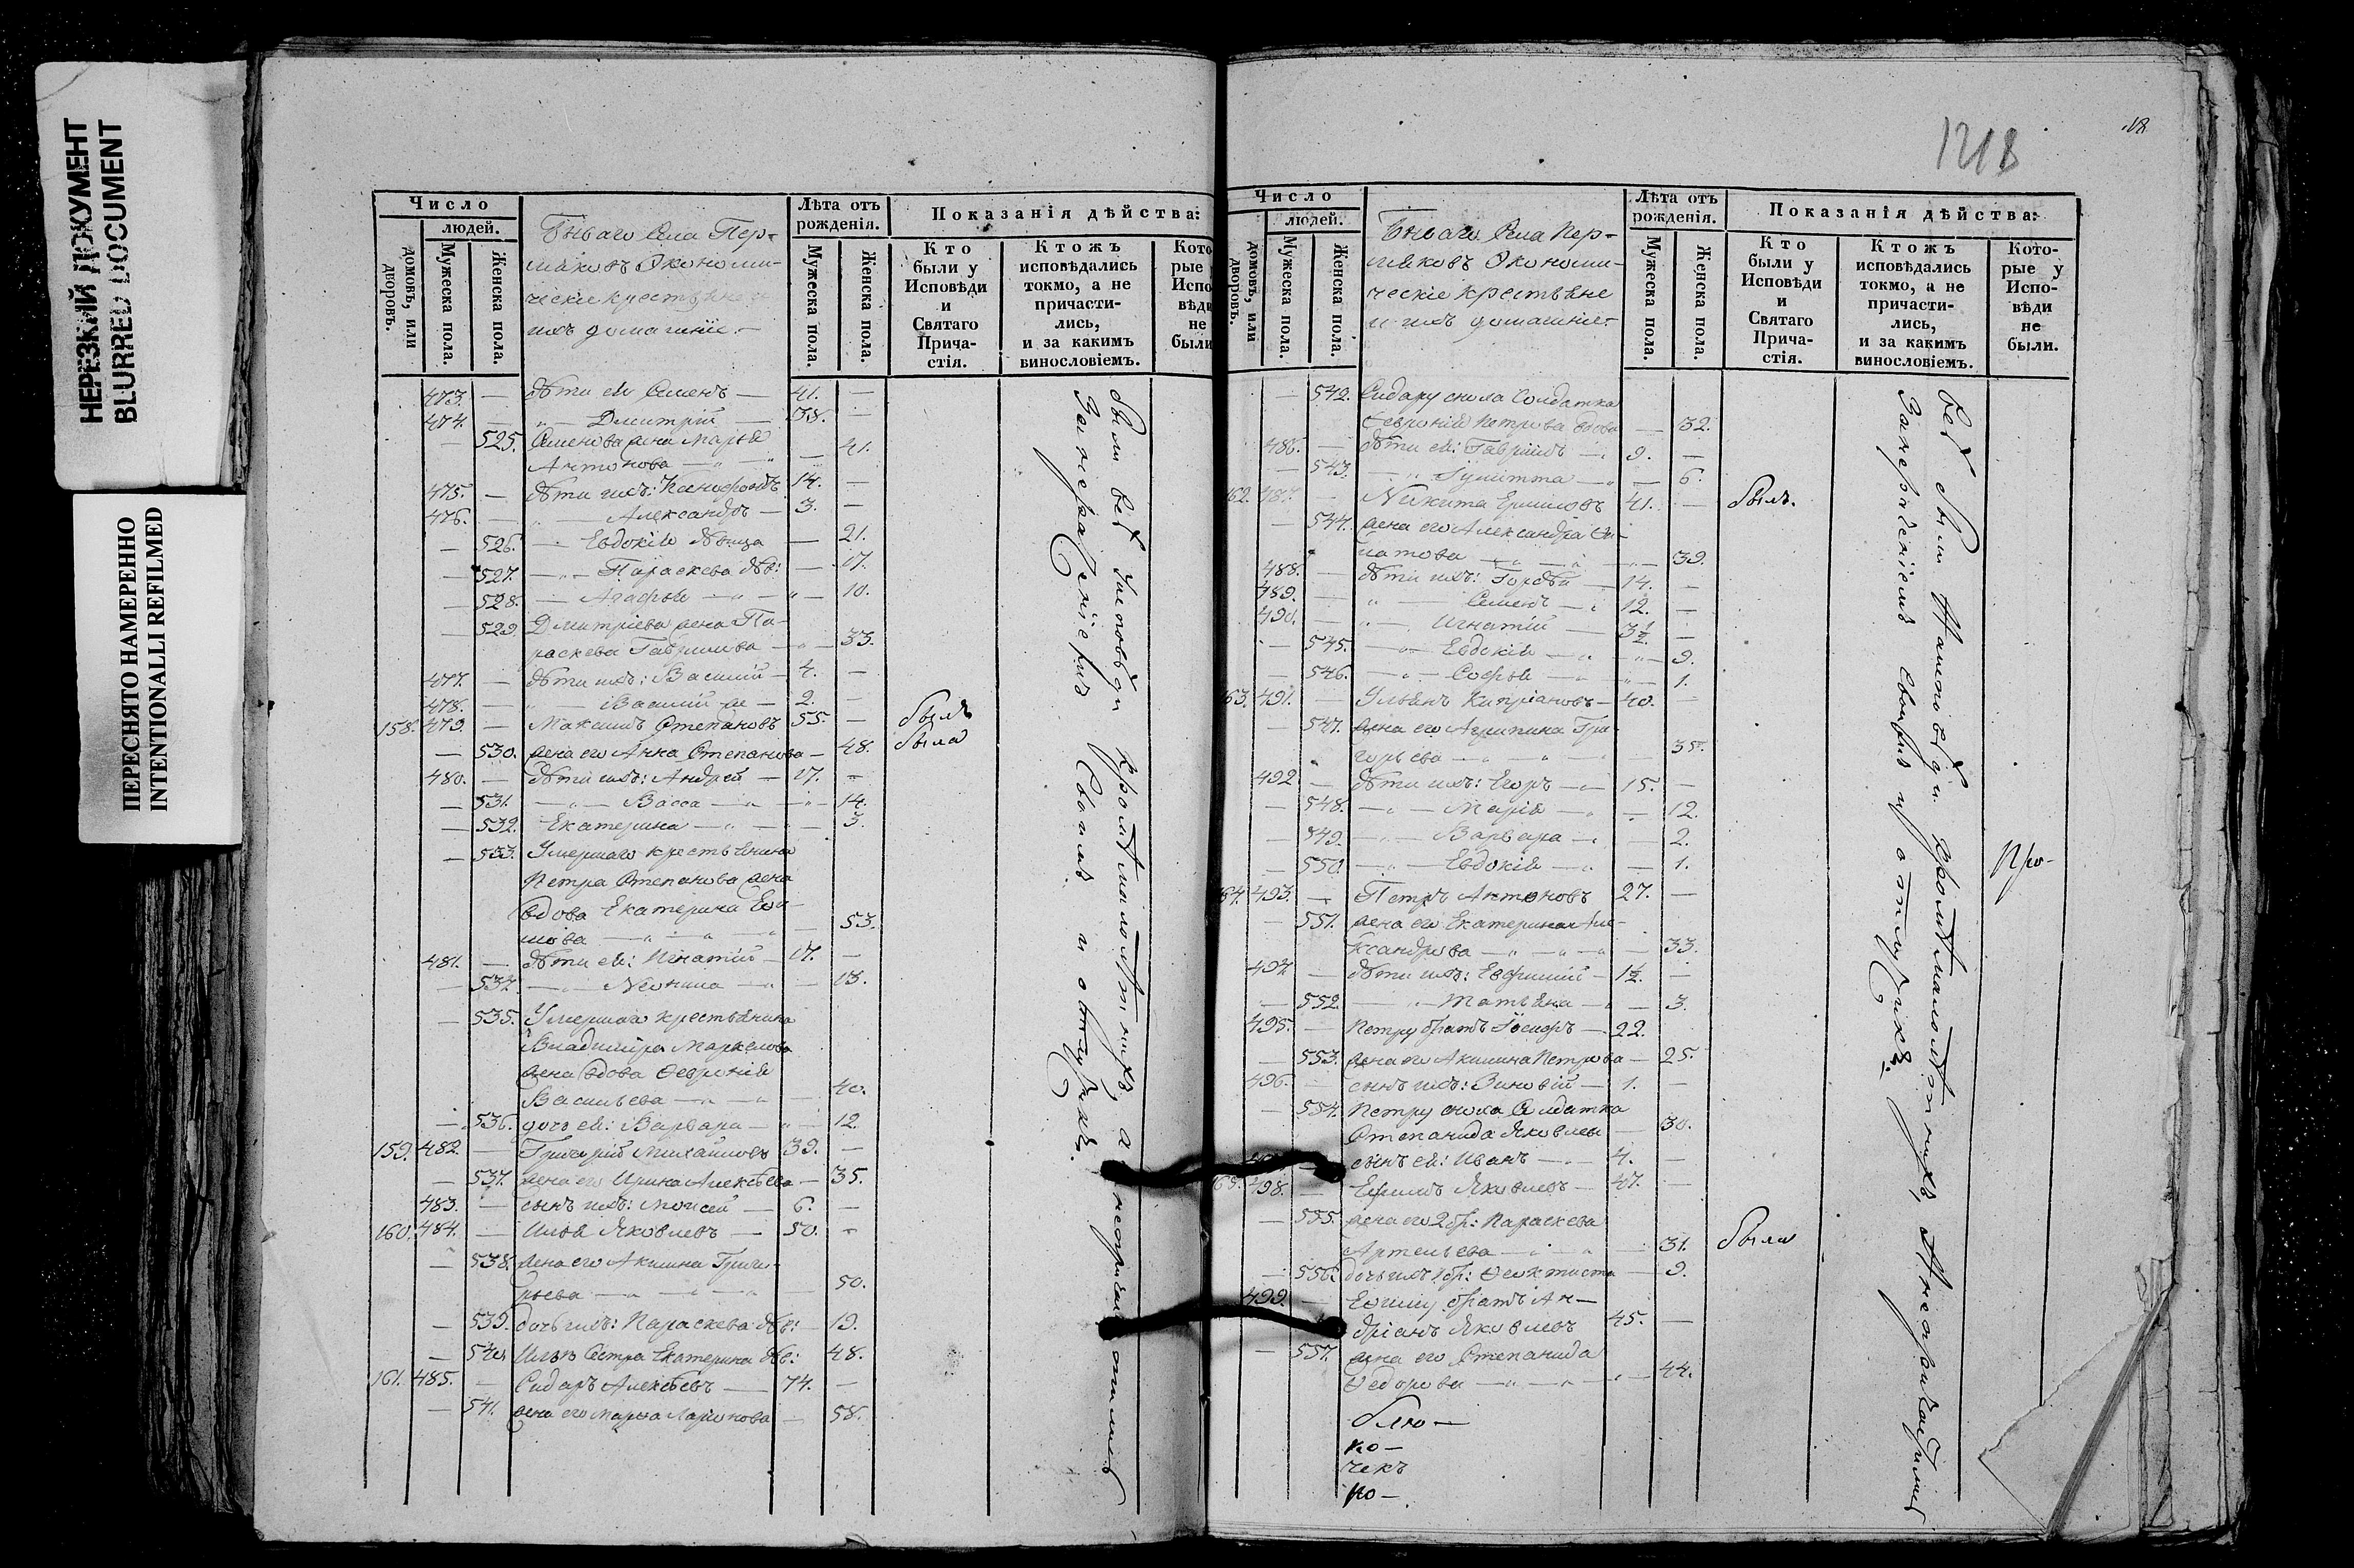 НЕРЕЗКИЙ ДОКУМЕНТ
BLURRED DOCUMENT
ПЕРЕСНЯТО НАМЕРЕННО
INTENTIONALLI REFILMED
Число
людей.
домовъ, или дворовъ.
Мужеска пола.
Женска пола.
Бываго Села Пер-
мяковъ Экономи-
ческіе крестьяне и
ихъ домашніе.
Лѣта отъ рожденія.
Мужеска пола.
Женска пола.
Показанія дѣйства:
Кто были у Исповѣди и Святаго Прича-стія.
Ктожъ исповѣдались токмо, а не причасти-лись, и за какимъ винословіемъ.
473. — дѣти ея Семенъ — 41. —
474. — — Дмитрій — 38. —
— 525. Семенова жена Марья
Антонова — — 41.
475. — дѣти ихъ: Ксенофонтъ 14. —
476. — — Александръ — 3. —
— 526. — Евдокія дѣвица — 21.
— 527. — Параскева дѣв: — 17.
— 528. — Агафья — — 10.
— 529. Дмитріева жена Па-
раскева Гаврилова — 33.
477. — дѣти ихъ: Василій — 4. —
478. — — Василій же — 2. —
158. 479. — Максимъ Степановъ 55. — былъ
— 530. жена его Анна Степанова — 48. была
480. — дѣти ихъ: Андрей — 17. —
— 531. — Васса — — 14.
— 532. Екатерина — — 3.
— 533. Умершаго крестьянина
Петра Степанова жена
вдова Екатерина Ефи-
мова — — 53.
481. — дѣти ея: Игнатій — 17. —
— 534. — Неонила — — 13.
— 535. Умершаго крестьянина
Владимира Маркелова
жена вдова Ѳевронія
Васильева — — 40.
— 536. дочь ея: Варвара — — 12.
159. 482. — Григорій Михайловъ 39. —
— 537. жена его Ирина Алексѣева — 35.
483. — сынъ ихъ: Моисей — 6. —
160. 484. — Илья Яковлевъ — 50. —
— 538. жена его Акилина Григо-
рьева — — 50.
— 539. дочь ихъ: Параскева дѣв: — 19.
— 540. Ильѣ сестра Екатерина дѣв: 48.
161. 485. — Сидоръ Алексѣевъ — 74. —
— 541. жена его Марѳа Ларіонова — 58.
были всѣ у исповѣди кромѣ малолѣтнихъ, а не причастились
За нераченіемъ своимъ и отлучкѣ.
1218
Число
людей.
домовъ, или дворовъ.
Мужеска пола.
Женска пола.
Бываго Села Пер-
мяковъ Экономи-
ческіе крестьяне
и ихъ домашніе.
Лѣта отъ рожденія.
Мужеска пола.
Женска пола.
Показанія дѣйства:
Кто были у Исповѣди и Святаго Прича-стія.
Ктожъ исповѣдались токмо, а не причасти-лись, и за какимъ винословіемъ.
Кото-рые у Испо-вѣди не были.
— 542. Сидару сноха солдатка
Ѳевронія Петрова вдова — 32.
486. — дѣти ея: Гавріилъ — 9. —
— 543. — Іулитта — — 6.
162. 487. — Никита Ермиловъ 41. — былъ.
— 544. жена его Александра
— 39.
488. — дѣти ихъ: Гордѣй — 14. —
489. — — Семенъ — 12. —
490. — — Игнатій — 3½ —
— 545. — Евдокія — — 9.
— 546. — Софья — — 1.
163. 491. — Ульянъ Кипріановъ — 40. —
— 547. жена его Агрипина Гри-
горьева — — 35.
492. — дѣти ихъ: Егоръ — 15. —
— 548. — Марія — — 12.
— 549. — Варвара — — 2.
— 550. — Евдокія — — 1.
164. 493. — Петръ Антоновъ 27. —
— 551. жена его Екатерина Але-
ксандрова — — 33.
494. — дѣти ихъ: Евфимій — 1½. —
— 552. — Татьяна — — 3.
495. — Петру братъ Іосифъ — 22.
— 553. жена его Акилина Петрова — 25.
496. — сынъ ихъ: Зиновій — 1. —
— 554. Петру сноха Солдатка
Степанида Яковлева — 30.
— сынъ ея: Иванъ — 4. —
165. 498. — Ефимъ Яковлевъ — 47. —
— 555. жена его 2 бр: Параскева
Артемьева — — 31. была
— 556. дочь ихъ 1 бр: Ѳеоктиста — 9.
499. — Ефиму братъ Ан-
дріанъ Яковлевъ 45. —
— 557. жена его Степанида
Ѳедорова — — 44.
Про-
всѣ были на исповѣди кромѣ малолѣтнихъ, а не причастились
За нераченіемъ своимъ и отлучкѣ.
блю-
ко-
чекъ
по-